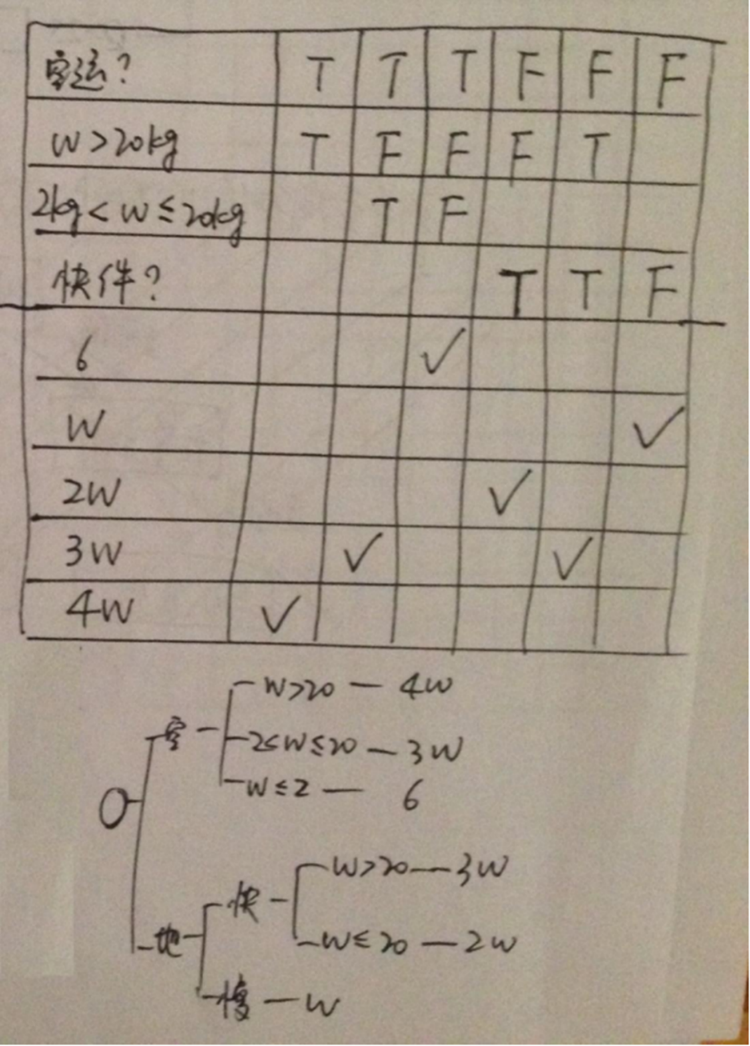 空运? T T T F F F
W>20kg T F F F T
2kg<W≤20kg T F
快件? T T F
6 ✓
W ✓
2W ✓
3W ✓ ✓
4W ✓
W>20 — 4W
空
2<W≤20 — 3W
W≤2 — 6
W>20 — 3W
快
地
W≤20 — 2W
慢 — W